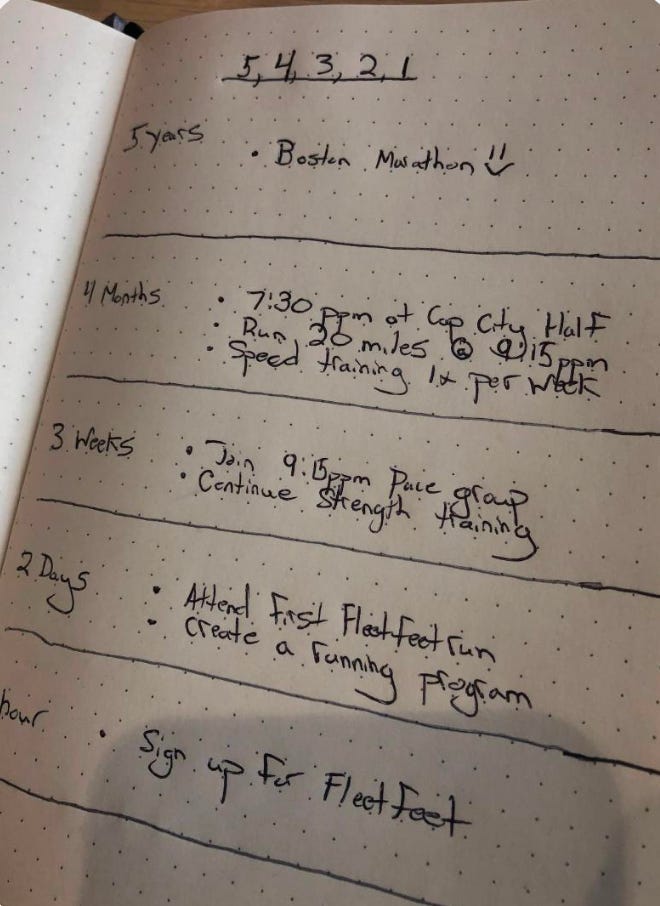 5, 4, 3, 2, 1
5 years
• Boston Marathon !!
4 Months
• 7:30 ppm at Cap City Half
• Run 20 miles @ 9:15 ppm
• Speed training 1x per week
3 Weeks
• Join 9:15ppm Pace group
• Continue Strength training
2 Days
• Attend First Fleetfeet run
• Create a running program
hour
• Sign up for Fleetfeet